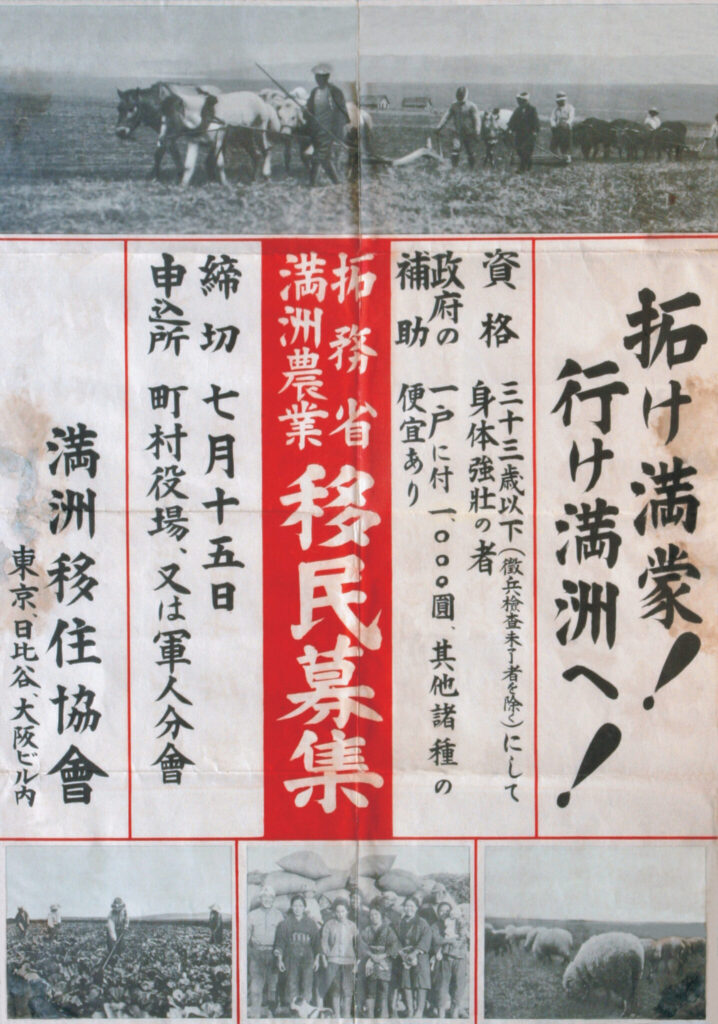 拓け満蒙!
行け満洲へ!
資格 三十三歳以下(徴兵檢査未了者を除く)にして
身体強壮の者
政府の補助 一戸に付一、〇〇〇圓、其他諸種の
便宜あり
拓務省
満洲農業
移民募集
締切 七月十五日
申込所 町村役場、又は軍人分會
満洲移住協會
東京、日比谷、大阪ビル内